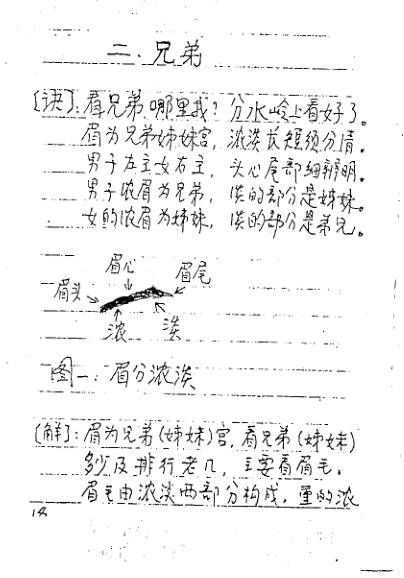 二、兄弟
〔诀〕：看兄弟哪里找？分水岭上看好了。
眉为兄弟姊妹宫，浓淡长短须分清。
男子左主女右主，头心尾部细辨明。
男子浓眉为兄弟，淡的部分是姊妹。
女的浓眉为姊妹，淡的部分是弟兄。
眉心
眉尾
眉头
浓 淡
图一：眉分浓淡
〔解〕：眉为兄弟（姊妹）宫，看兄弟（姊妹）
多少及排行老几，主要看眉毛。
眉毛由浓淡两部分构成，里的浓